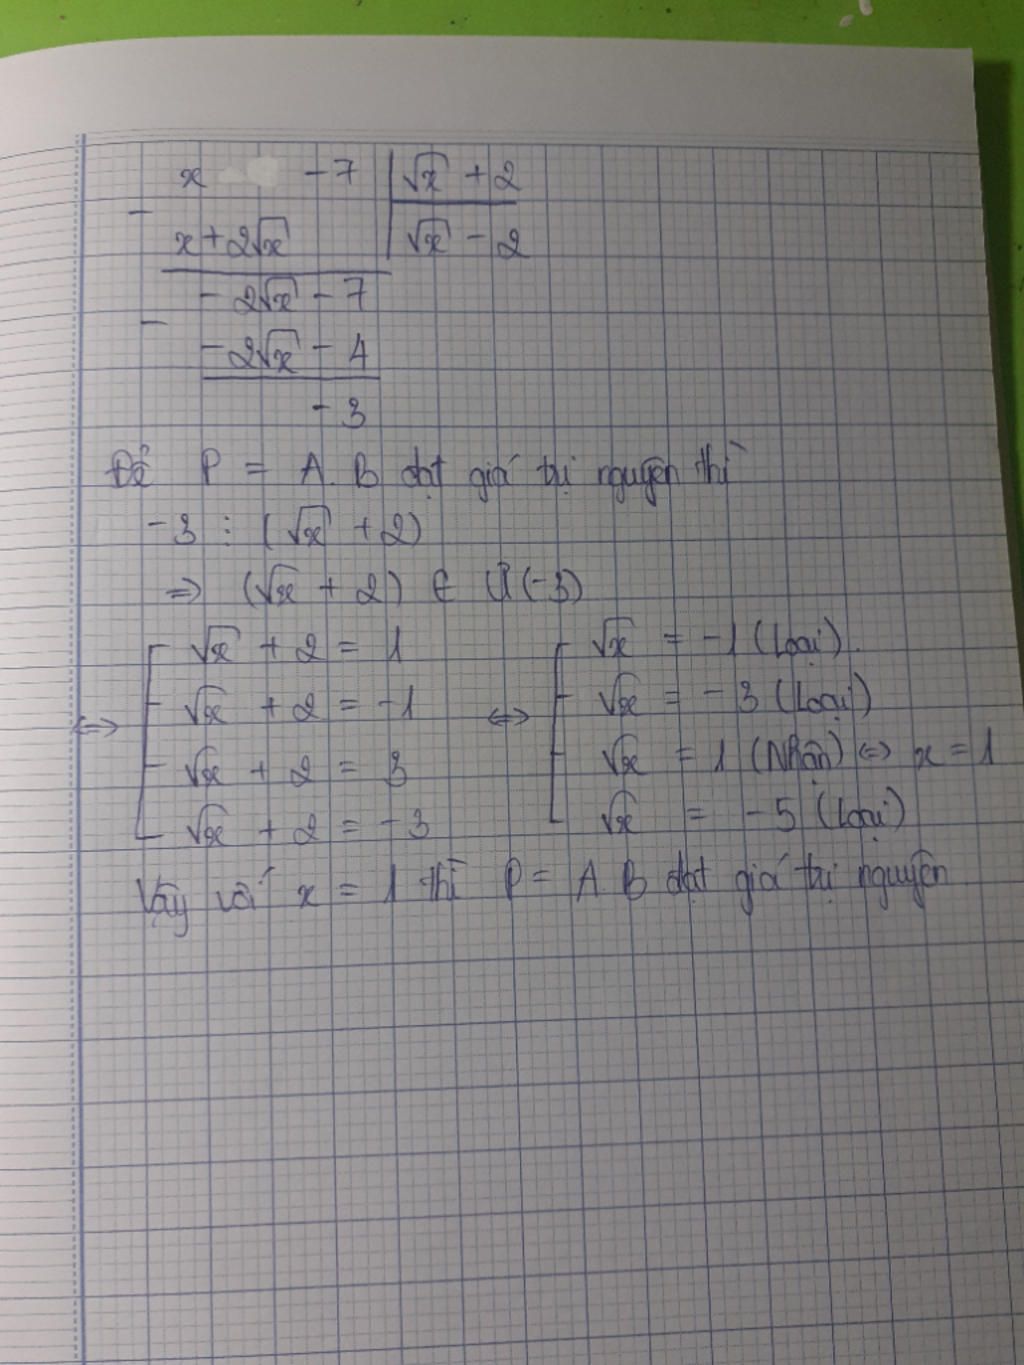 x - 7 | √x + 2
-
x + 2√x | √x - 2
- 2√x - 7
-
- 2√x - 4
- 3
Để P = A.B đạt giá trị nguyên thì
-3 ⋮ (√x + 2)
⇒ (√x + 2) ∈ Ư(-3)
√x + 2 = 1 √x = -1 (Loại).
⇔ √x + 2 = -1 ⇔ √x = -3 (Loại)
√x + 2 = 3 √x = 1 (Nhận) ⇔ x = 1
√x + 2 = -3 √x = -5 (Loại)
Vậy với x = 1 thì P = A.B đạt giá trị nguyên